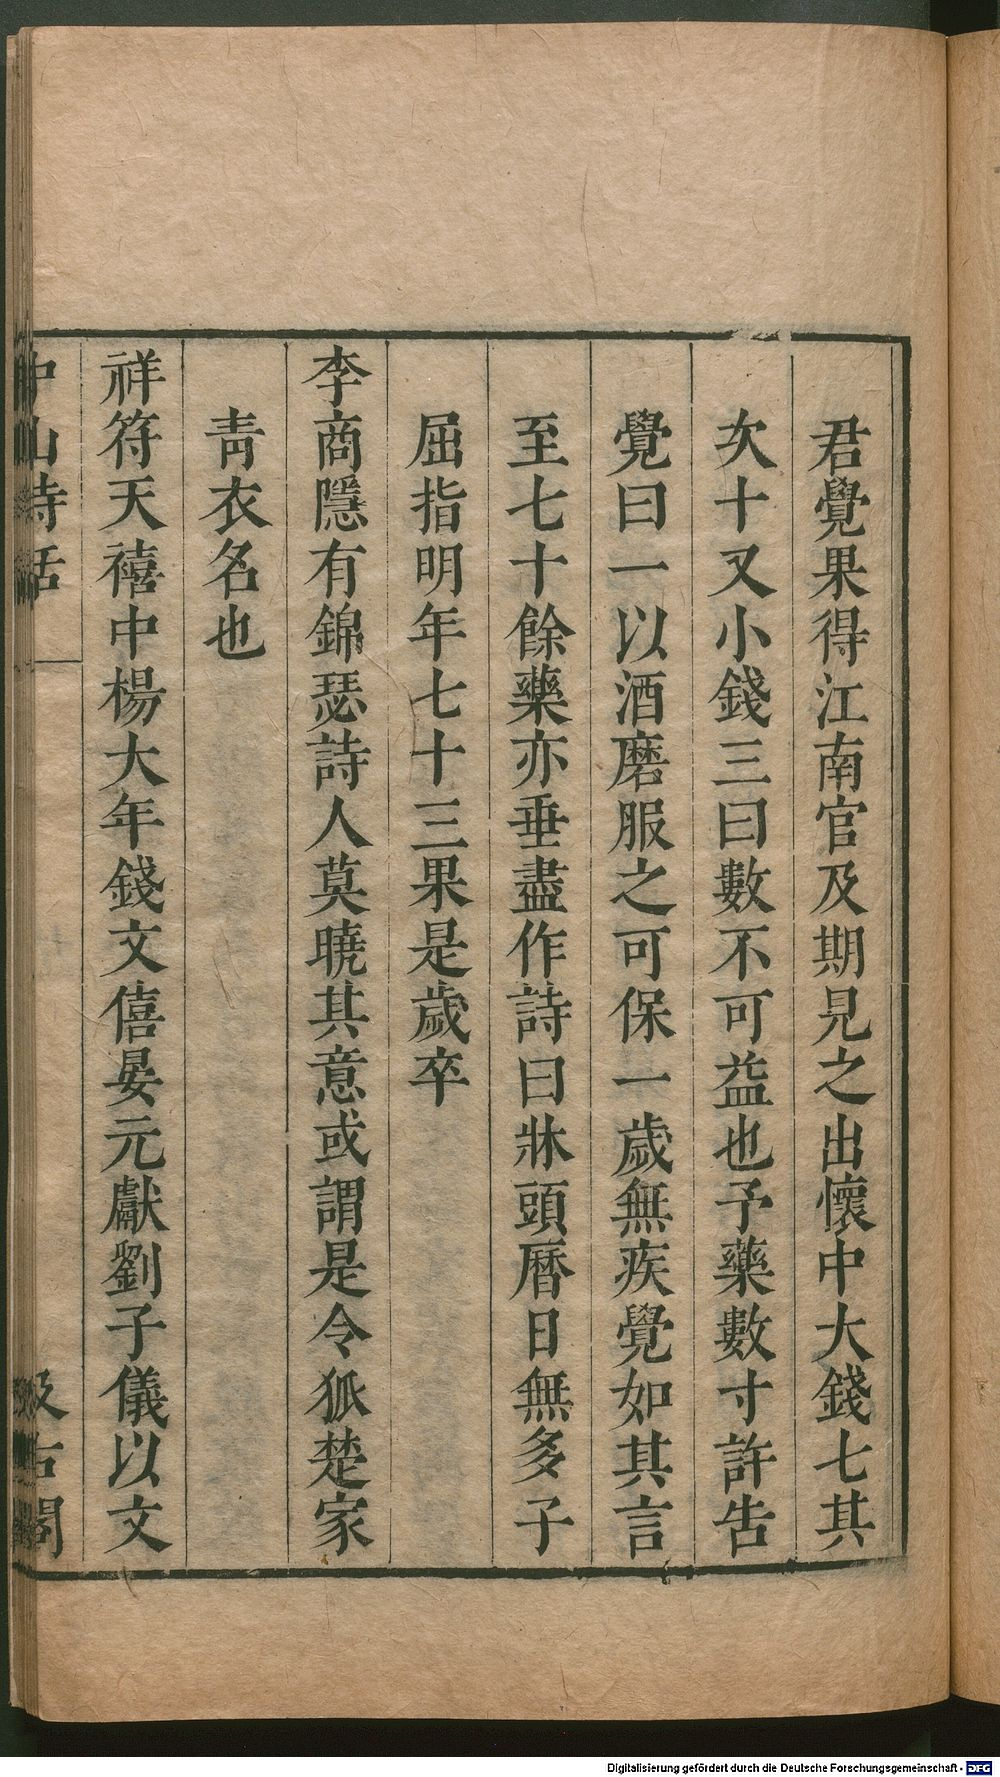 君覺果得江南官及期見之出懷中大錢七其
次十又小錢三曰數不可益也予藥數寸許告
覺曰一以酒磨服之可保一歲無疾覺如其言
至七十餘藥亦垂盡作詩曰牀頭曆日無多子
屈指明年七十三果是歲卒
李商隱有錦瑟詩人莫曉其意或謂是令狐楚家
青衣名也
祥符天禧中楊大年錢文僖晏元獻劉子儀以文
中山詩話
汲古閣
Digitalisierung gefördert durch die Deutsche Forschungsgemeinschaft - DFG